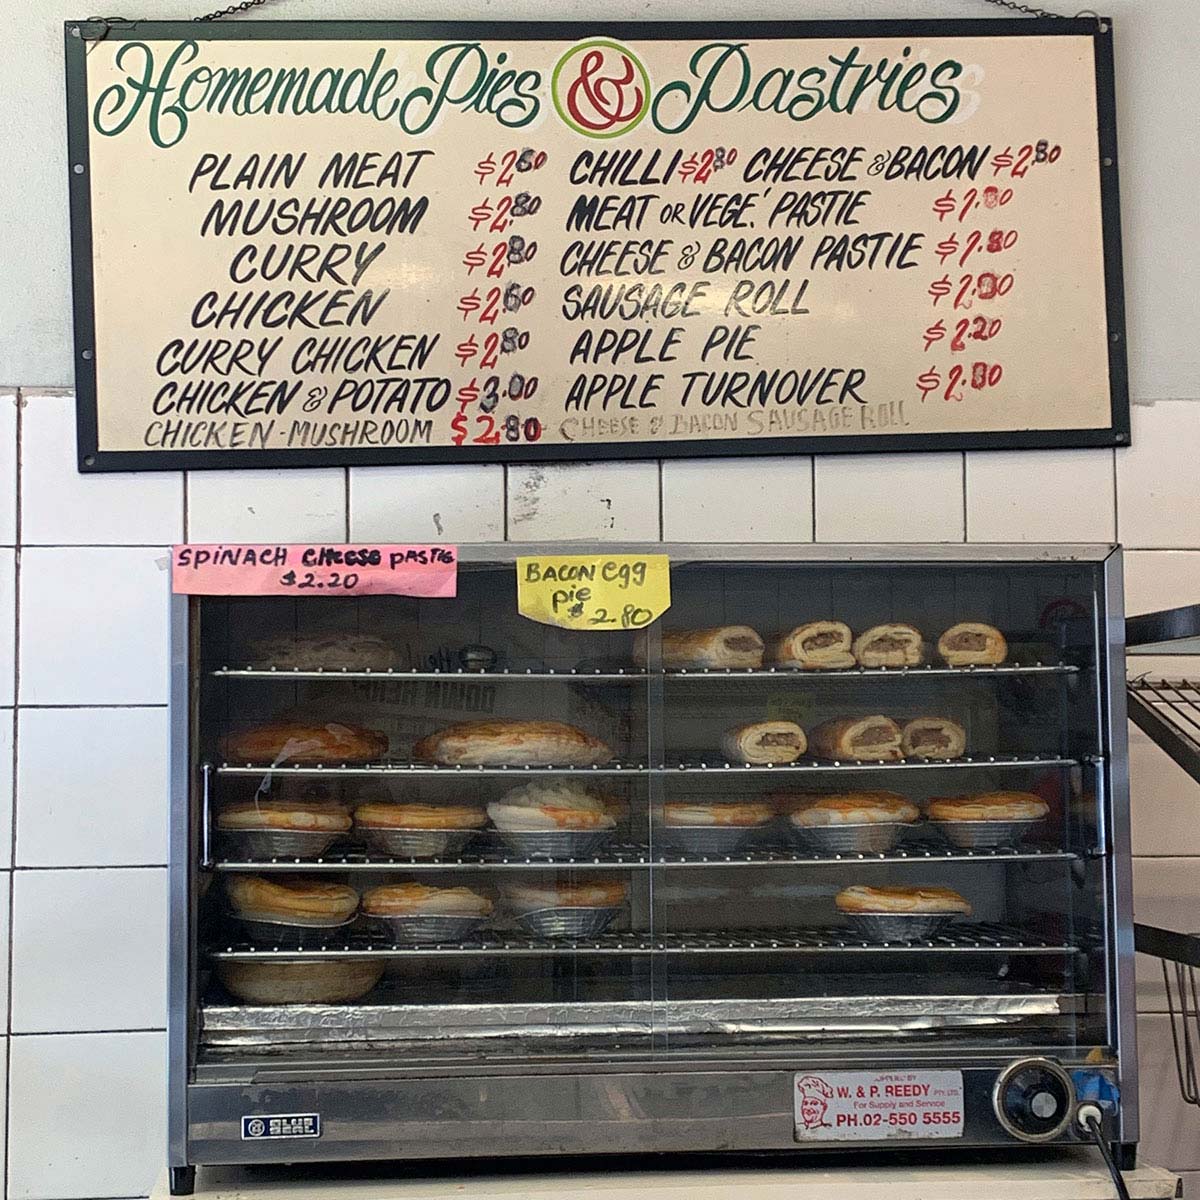 Homemade Pies & Pastries
PLAIN MEAT $2.60
MUSHROOM $2.80
CURRY $2.80
CHICKEN $2.60
CURRY CHICKEN $2.80
CHICKEN & POTATO $3.00
CHICKEN-MUSHROOM $2.80
CHILLI $2.80 CHEESE & BACON $2.80
MEAT OR VEGE.' PASTIE
CHEESE & BACON PASTIE
SAUSAGE ROLL
APPLE PIE $2.20
APPLE TURNOVER
CHEESE & BACON SAUSAGE ROLL
SPINACH CHEESE PASTIE
$2.20
BACON egg
pie
$2.80
BLUE
SEAL
W. & P. REEDY PTY. LTD.
For Supply and Service
PH.02-550 5555